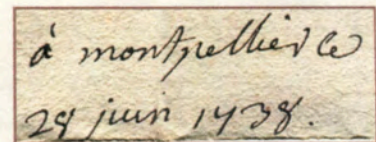 à montpellier ce
28 juin 1738.